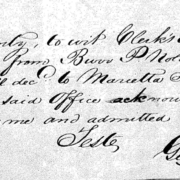 nty, to wit Clerk's
from Burr P Nol
dec^d to Marcella
said Office acknow
me and admitted
Teste